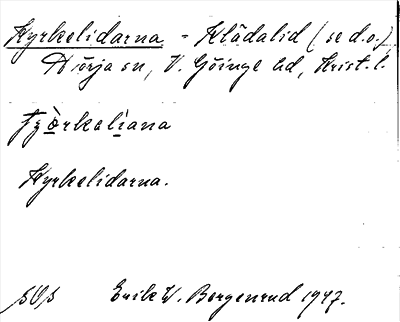 Kyrkelidarna - Klådalid (se d.o.),
Norja sn, V. Göinge hd, Krist. l.
Kyrkelidarna.
SOS Erik W. Bergenrud 1947.